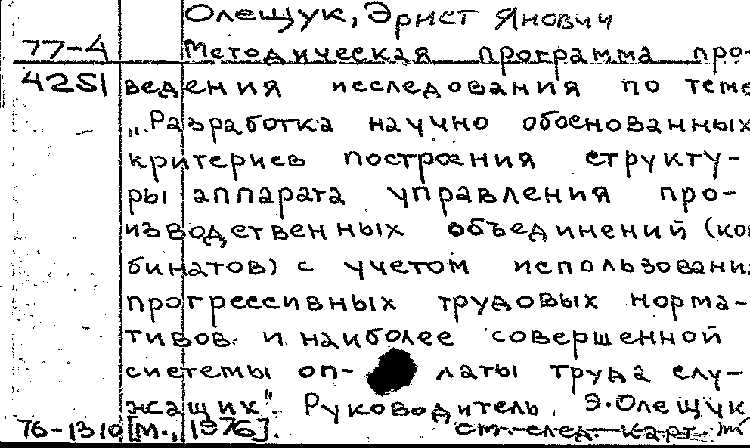 Олещук, Эрнст Янович
77-4 Методическая программа про-
4251 ведения исследования по теме
„Разработка научно обоснованных
критериев построения структу-
ры аппарата управления про-
изводственных объединений (ком
бинатов) с учетом использовани
прогрессивных трудовых норма-
тивов и наиболее совершенной
системы оп- латы труда слу-
жащих". Руководитель Э. Олещук
76-1310 [М., 1976]. см. след. карт.